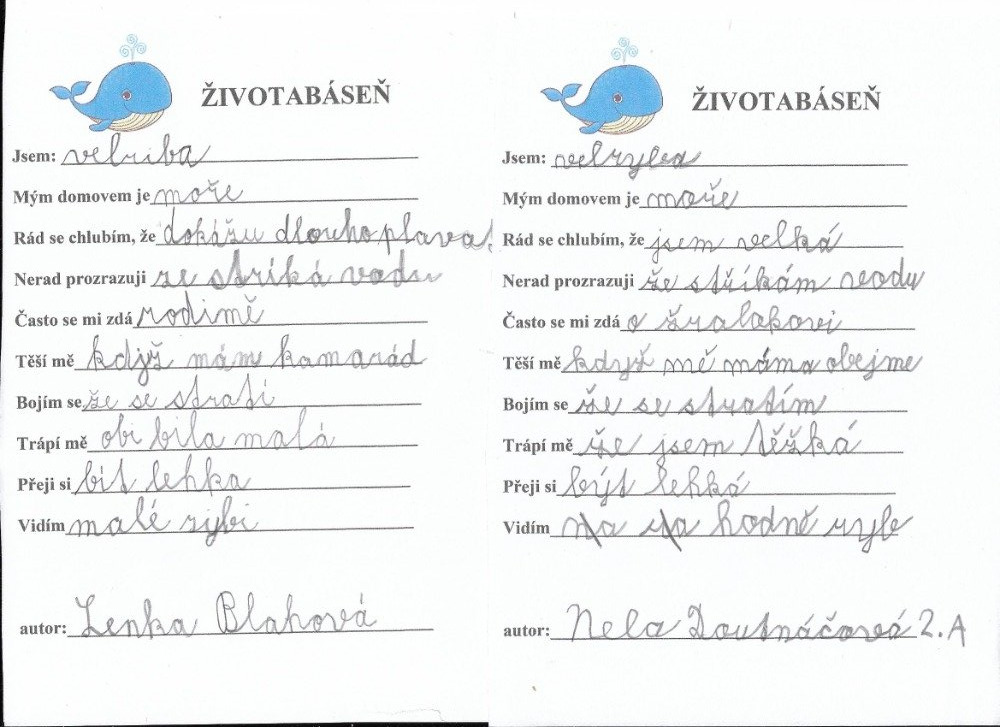 ŽIVOTABÁSEŇ
Jsem: velriba
Mým domovem je moře
Rád se chlubím, že dokážu dlouho plavat
Nerad prozrazuji ze stříká vodu
Často se mi zdá rodimě
Těší mě když mám kamarád
Bojím se že se strati
Trápí mě obi bila malá
Přeji si bít lehka
Vidím malé rybi
autor: Lenka Blahová
ŽIVOTABÁSEŇ
Jsem: velryba
Mým domovem je moře
Rád se chlubím, že jsem velká
Nerad prozrazuji že stříkám vodu
Často se mi zdá o žralokovi
Těší mě když mě máma obejme
Bojím se že se stratím
Trápí mě že jsem těžká
Přeji si být lehká
Vidím hodně ryb
autor: Nela Doutnáčová 2.A